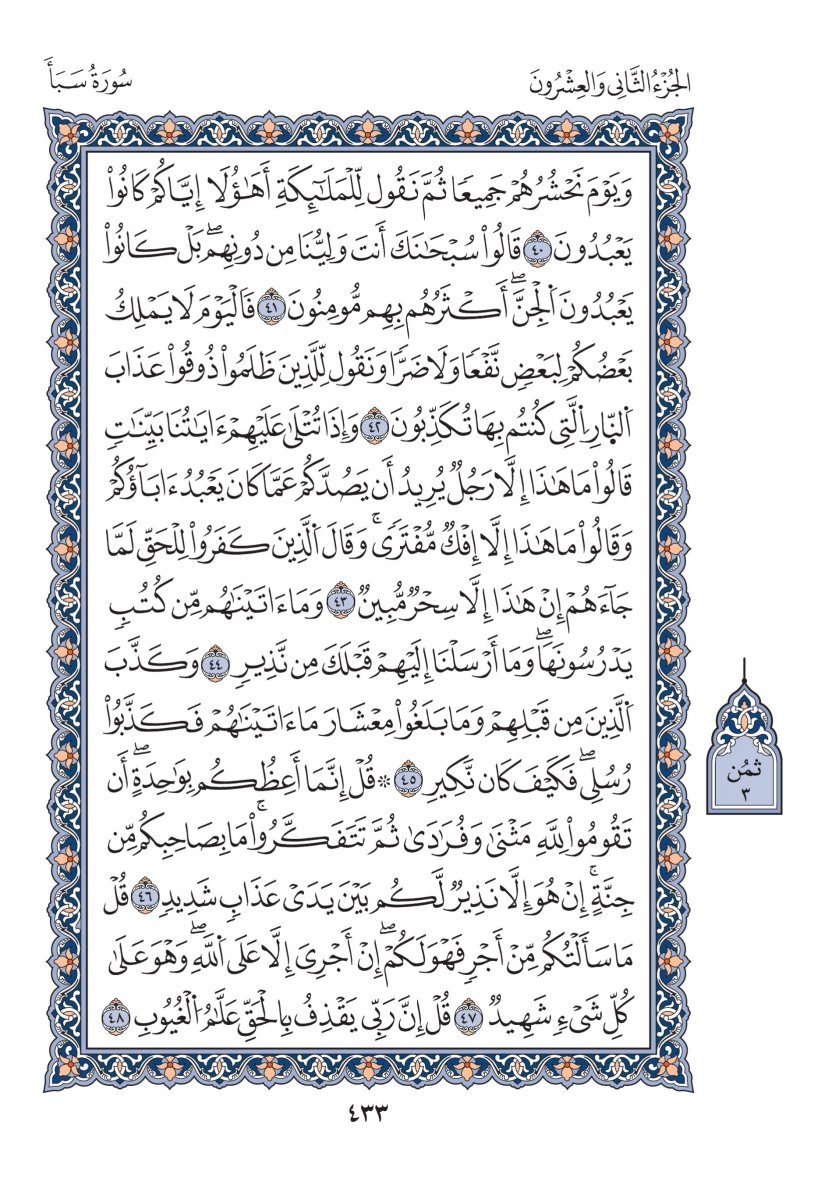 الجُزْءُ الثَّانِي وَالعِشْرُونَ
سُورَةُ سَبَأ
وَيَوْمَ نَحْشُرُهُمْ جَمِيعًا ثُمَّ نَقُول لِّلْمَلَٰٓئِكَةِ أَهَٰؤُلَا إِيَّاكُمْ كَانُوا۟
يَعْبُدُونَ ٤٠ قَالُوا۟ سُبْحَٰنَكَ أَنتَ وَلِيُّنَا مِن دُونِهِمۖ بَلْ كَانُوا۟
يَعْبُدُونَ ٱلْجِنَّۖ أَكْثَرُهُم بِهِم مُّومِنُونَ ٤١ فَٱلْيَوْمَ لَا يَمْلِكُ
بَعْضُكُمْ لِبَعْضٍ نَّفْعًا وَلَا ضَرًّا وَنَقُول لِّلَّذِينَ ظَلَمُوا۟ ذُوقُوا۟ عَذَابَ
ٱلنّ۪ارِ ٱلَّتِى كُنتُم بِهَا تُكَذِّبُونَ ٤٢ وَإِذَا تُتْلَىٰ عَلَيْهِمْ ءَايَٰتُنَا بَيِّنَٰتٍ
قَالُوا۟ مَا هَٰذَا إِلَّا رَجُلٌ يُرِيدُ أَن يَصُدَّكُمْ عَمَّا كَانَ يَعْبُدُ ءَابَآؤُكُمْ
وَقَالُوا۟ مَا هَٰذَا إِلَّا إِفْكٌ مُّفْتَرًىۚ وَقَالَ ٱلَّذِينَ كَفَرُوا۟ لِلْحَقِّ لَمَّا
جَآءَهُمْ إِنْ هَٰذَا إِلَّا سِحْرٌ مُّبِينٌ ٤٣ وَمَا ءَاتَيْنَٰهُم مِّن كُتُبٍ
يَدْرُسُونَهَاۖ وَمَا أَرْسَلْنَا إِلَيْهِمْ قَبْلَكَ مِن نَّذِيرٍ ٤٤ وَكَذَّبَ
ٱلَّذِينَ مِن قَبْلِهِمْ وَمَا بَلَغُوا۟ مِعْشَارَ مَا ءَاتَيْنَٰهُمْ فَكَذَّبُوا۟
رُسُلِىۖ فَكَيْفَ كَان نَّكِيرِ ٤٥ ۞ قُلْ إِنَّمَا أَعِظُكُم بِوَٰحِدَةٍۖ أَن
تَقُومُوا۟ لِلَّهِ مَثْنَىٰ وَفُرَٰدَىٰ ثُمَّ تَتَفَكَّرُوا۟ۚ مَا بِصَاحِبِكُم مِّن
جِنَّةٍۚ إِنْ هُوَ إِلَّا نَذِيرٌ لَّكُم بَيْنَ يَدَىْ عَذَابٍ شَدِيدٍ ٤٦ قُلْ
مَا سَأَلْتُكُم مِّنْ أَجْرٍ فَهْوَ لَكُمْۖ إِنْ أَجْرِىَ إِلَّا عَلَى ٱللَّهِۖ وَهْوَ عَلَىٰ
كُلِّ شَىْءٍ شَهِيدٌ ٤٧ قُلْ إِنَّ رَبِّى يَقْذِفُ بِالْحَقِّ عَلَّٰمُ ٱلْغُيُوبِ ٤٨
ثمُن
٣
٤٣٣